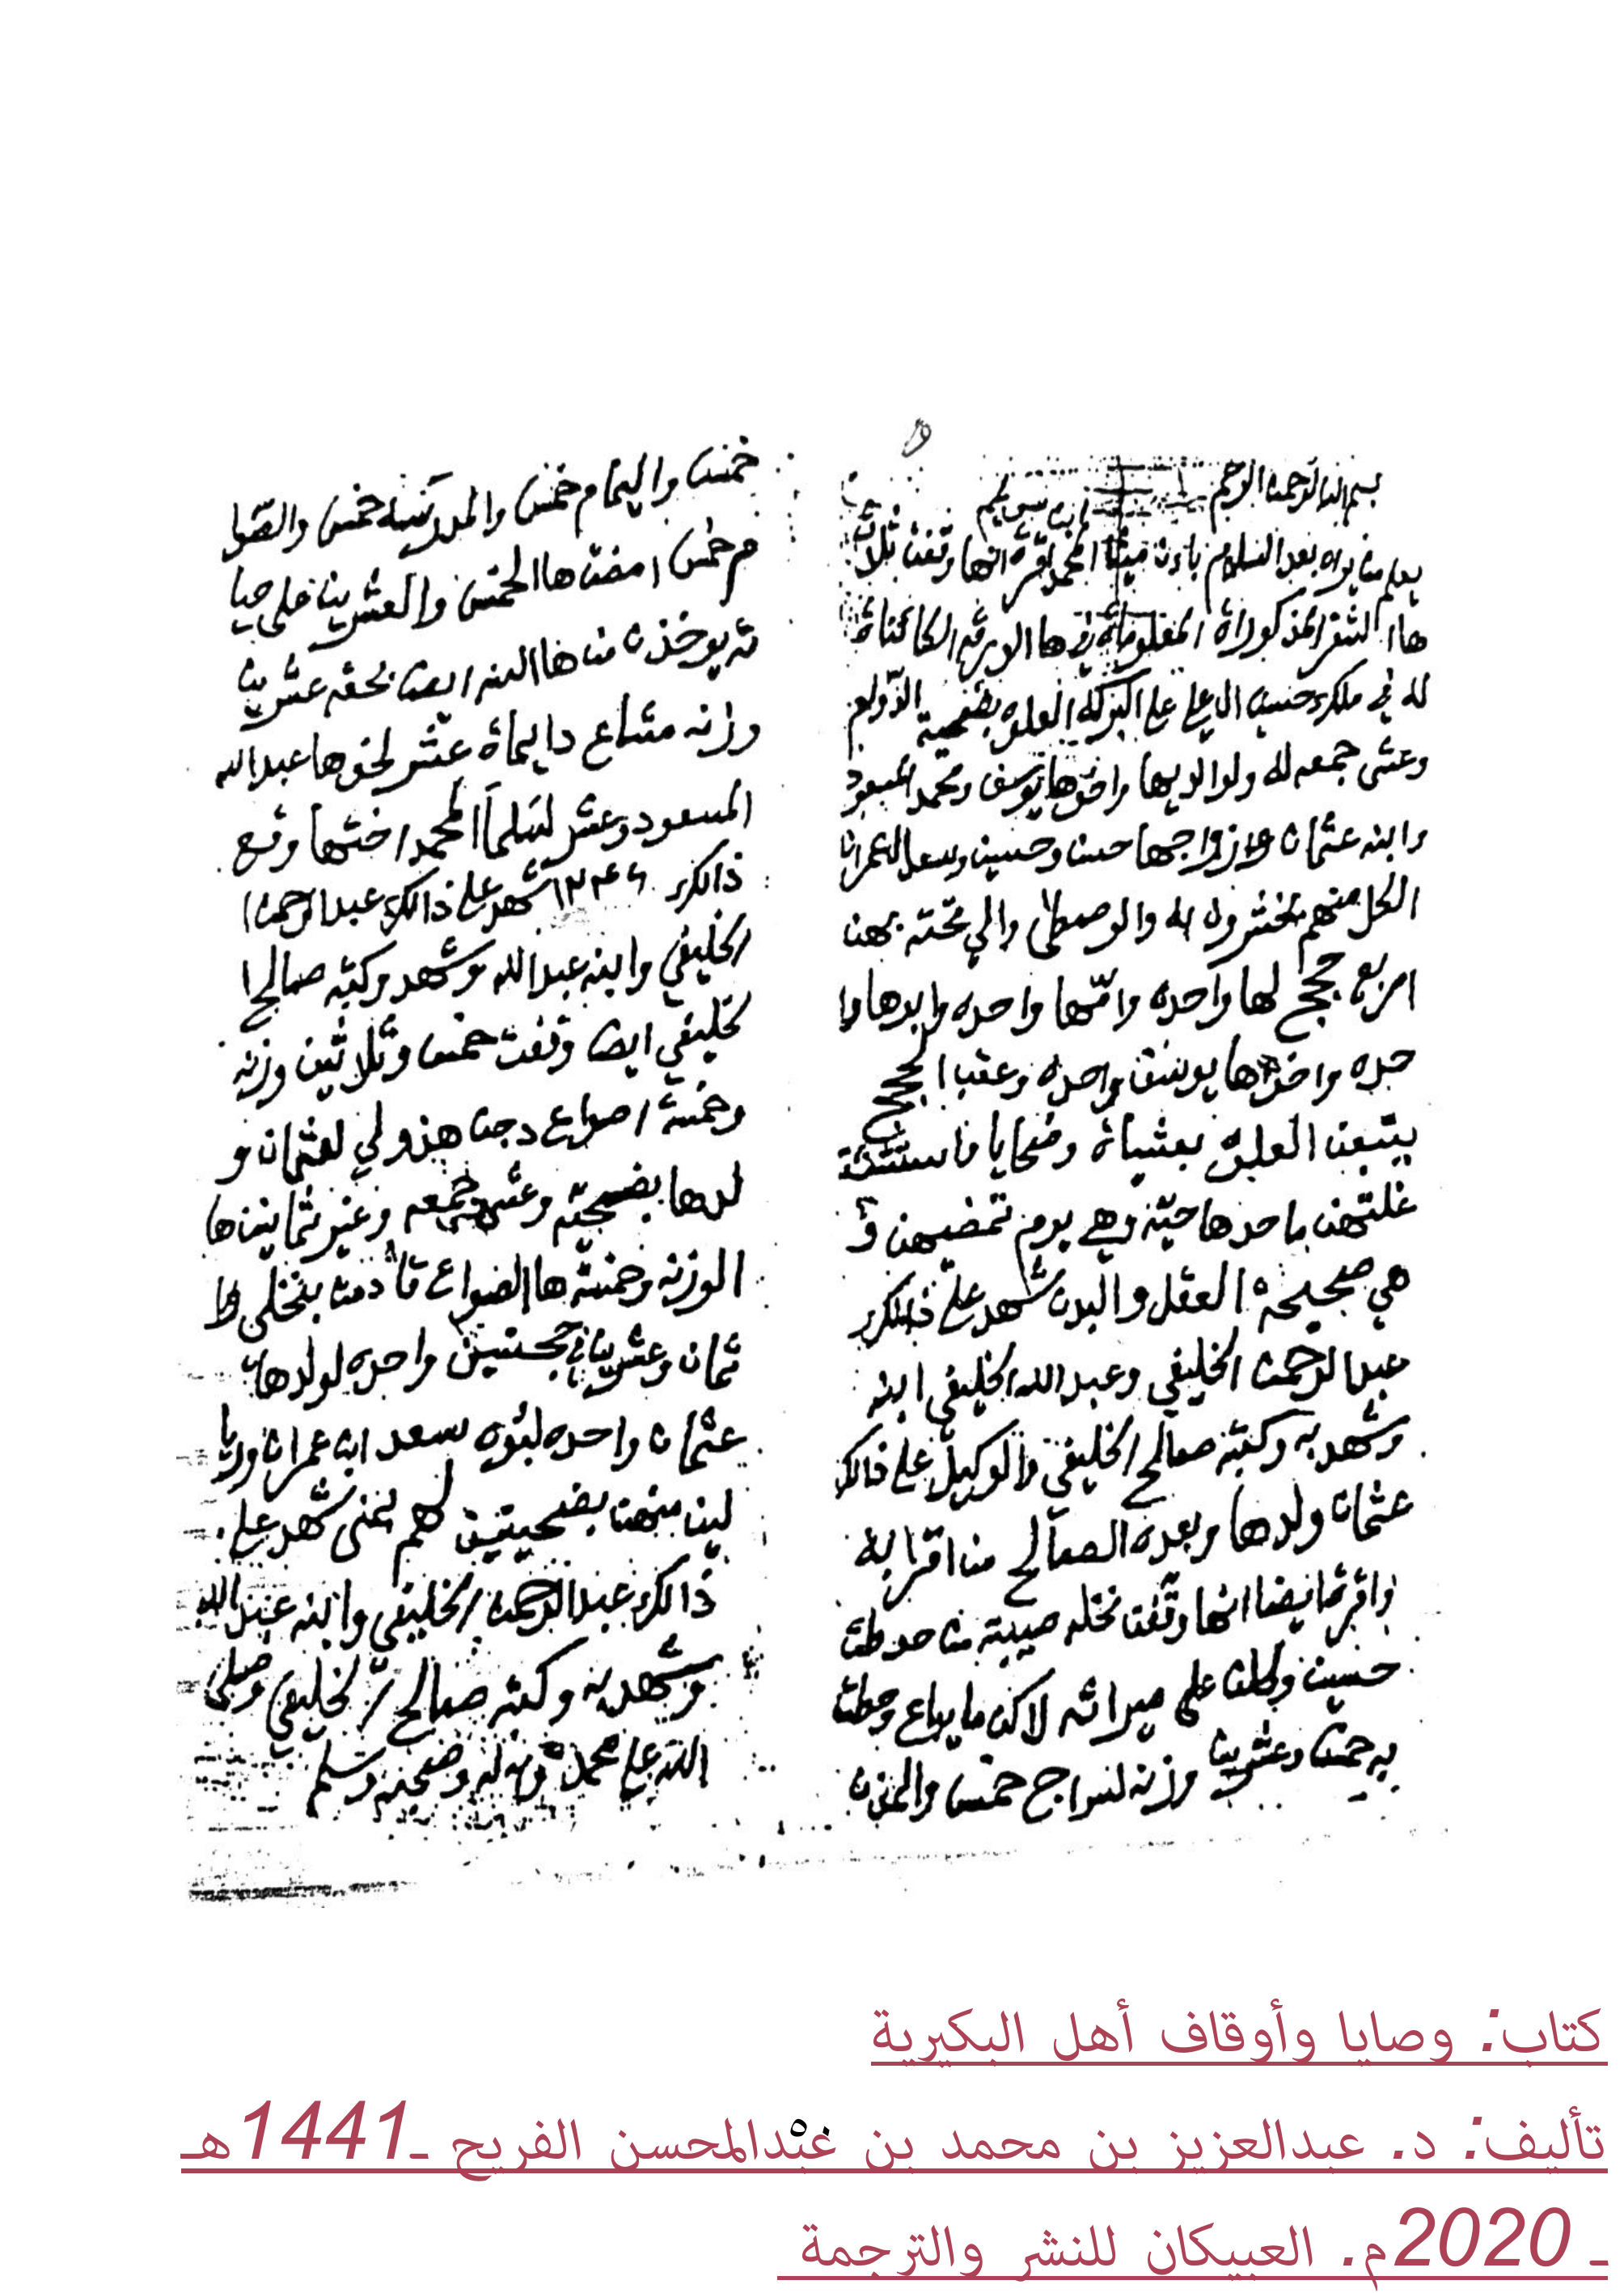 بسم الله الرحمن الرحيم
يعلم من يراه بعد السلام بان المحمد مقره انها وقفت ثلاث
ها الشقر المذكوراة المعلوماة في ها الورقه الكائناة
له في ملكه حسين العلي على البركه العلوه بضحية الدوام
وعشى جمعه له ولوالديها واخوها يوسف ومحمد المسعود
وابنه عثمان وازواجها حسن وحسين وسعد العمران
الكل منهم والوصطى والي تحته بهن
اربع حجج لها واحده وامها واحده وابوها وا
حده واخوها يوسف واحده وعقب الحجج
يتبعن العلوه بعشياة وضحايا فاستثنة
غلتهن ماحدها حيه وهي يوم تمضيهن و
هي صحيحة العقل والبدن شهد على ذالك
عبدالرحمن الخليفي وعبدالله الخليفي ابنه
وشهد به وكتبه صالح الخليفي والوكيل على ذالك
عثمان ولدها وبعده الصالح من اقرابه
واقرت ايضا انها وقفت نخله صيبته من حد طة
حسين وكلن على ميراثه لاكن ما يباع وحطت
به خمس وعشرين وزنه لسراج خمس والمذن
خمس واليمام خمس والمدرسه خمس والصوا
م خمس امضت ها الخمس والعشرين على حيا
ته يوخذن من ها النه ايضا بحقه عشرين
وزنه مشاع دايماة عشر لخوها عبدالله
المسعود وعشر لسلما المحمد اختها وقع
ذالك ١٢٤٦ شهد على ذالك عبدالرحمن ا
لخليفي وابنه عبدالله وشهد وكتبه صالح ا
لخليفي ايضا وقفت خمس وثلاثين وزنه
وخمسة اصواع دجن هذولي لعثمان و
لدها بضحيه وعشى جمعه وغير ثمانين ها
الوزنه وخمسة ها الصواع قادمن بنخلي
ثمان وعشرين في حجتين واحده لولدها
عثمان واحده لبوه سعد ابن عمران وريا
لين منهن بضحيتين لهم شهد على
ذالك عبدالرحمن الخليفي وابنه عبدالله
وشهد به وكتبه صالح الخليفي وصلى
الله على محمد واله وصحبه وسلم
كتاب: وصايا وأوقاف أهل البكيرية
تأليف: د. عبدالعزيز بن محمد بن عبدالمحسن الفريح ـ1441هـ
٥٠
ـ 2020م. العبيكان للنشر والترجمة